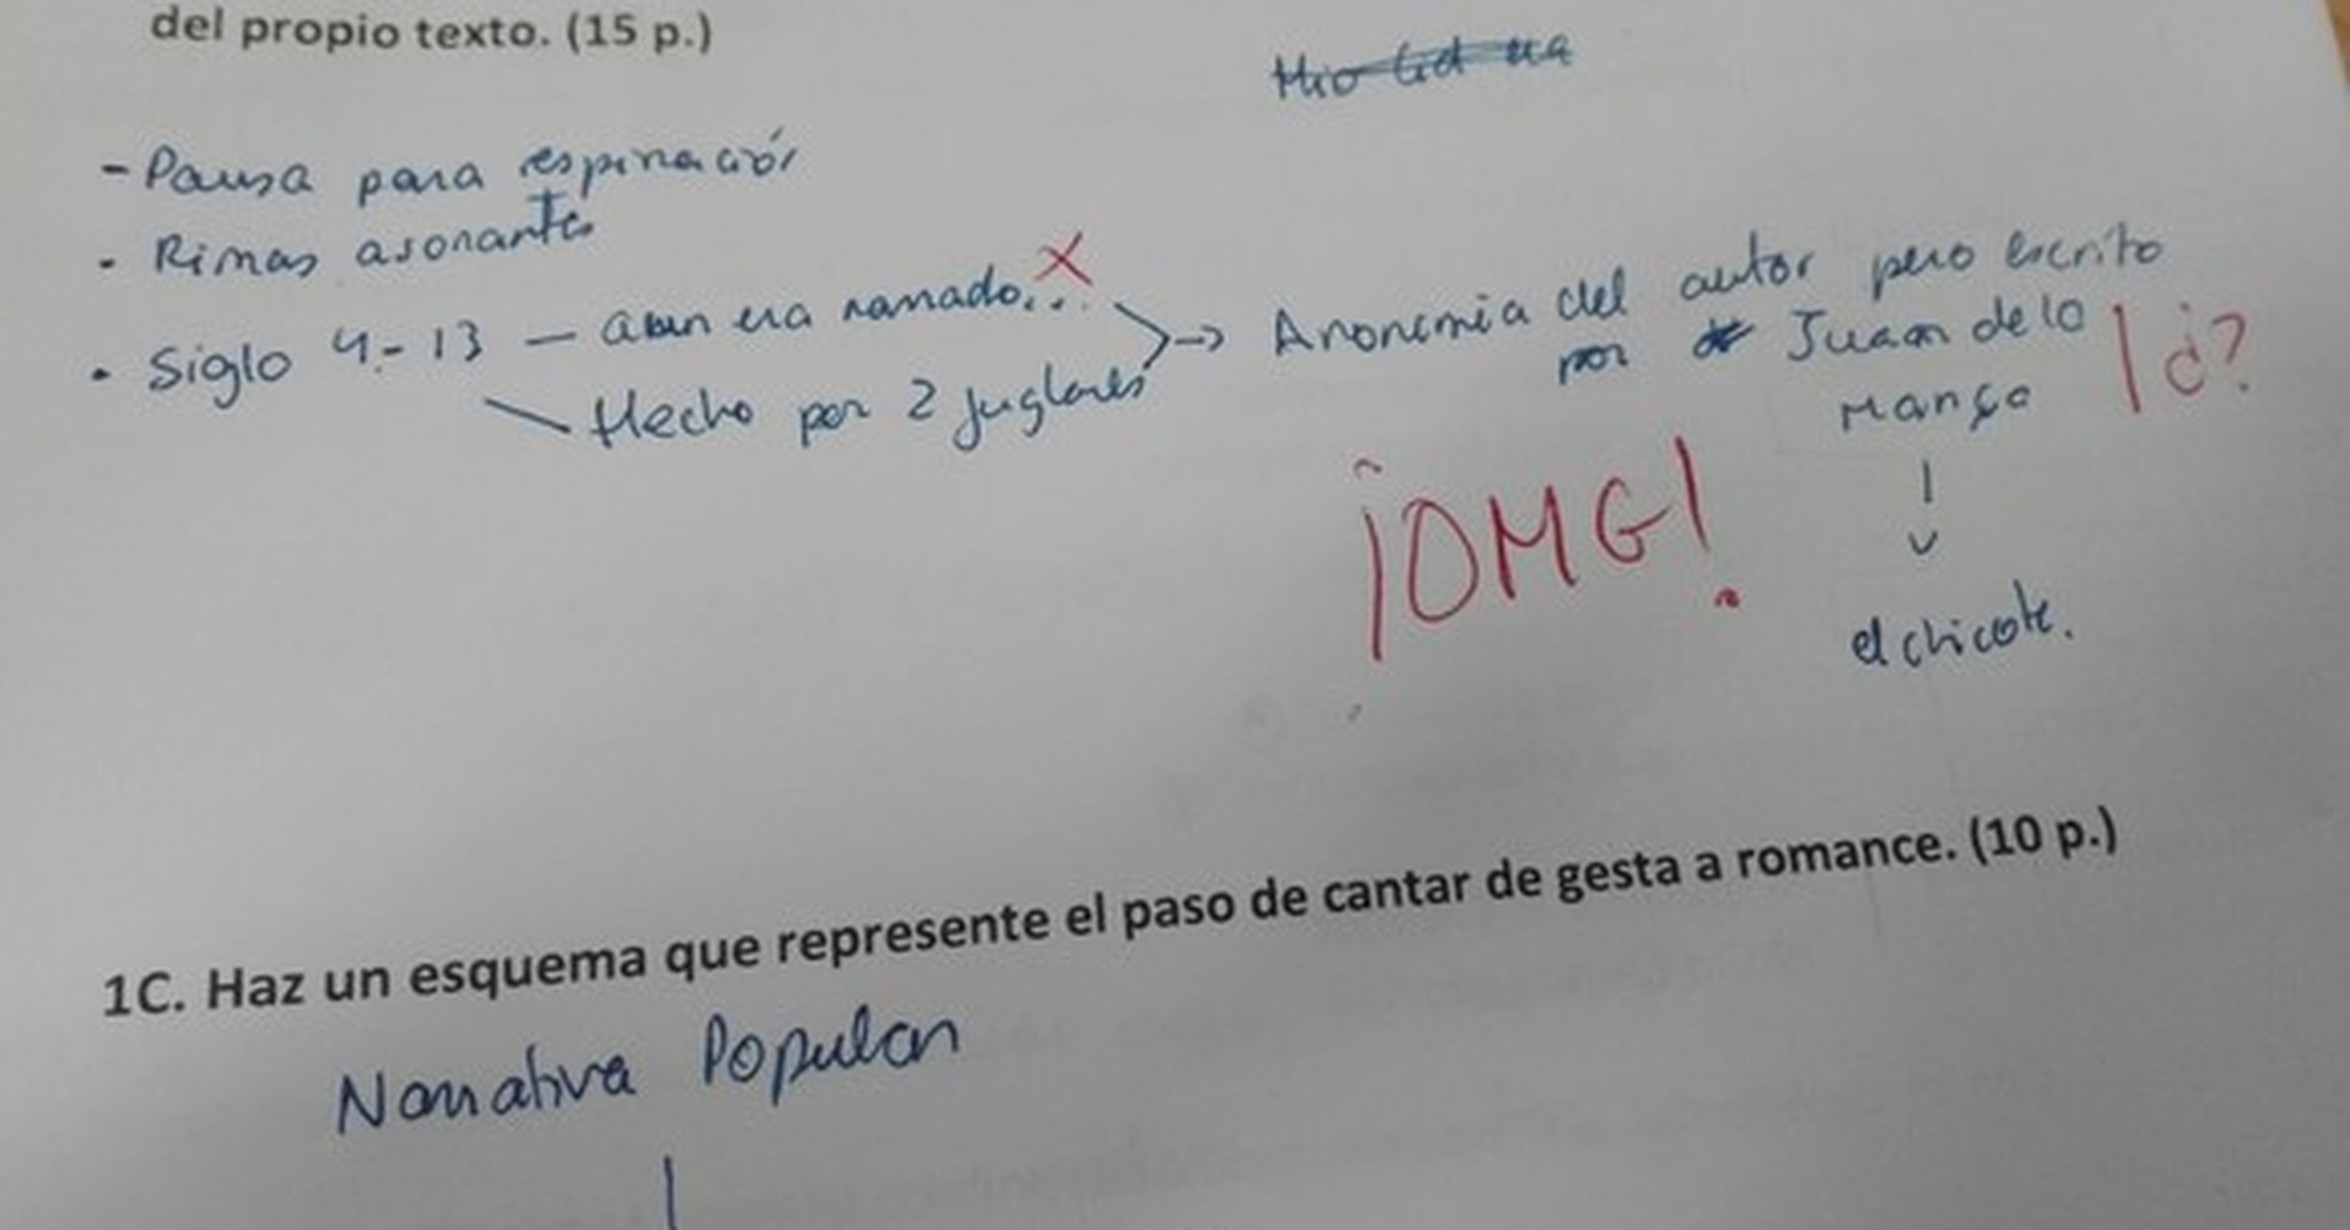 del propio texto. (15 p.)
Mio Cid
- Pausa para respiración
- Rimas asonantes
- Siglo - 13 — aun era narrado...
Hecho por 2 juglares
Anonomia del autor pero escrito
por Juan de lo
Manço
¿?
¡OMG!
el chicote.
1C. Haz un esquema que represente el paso de cantar de gesta a romance. (10 p.)
Narrativa Popular